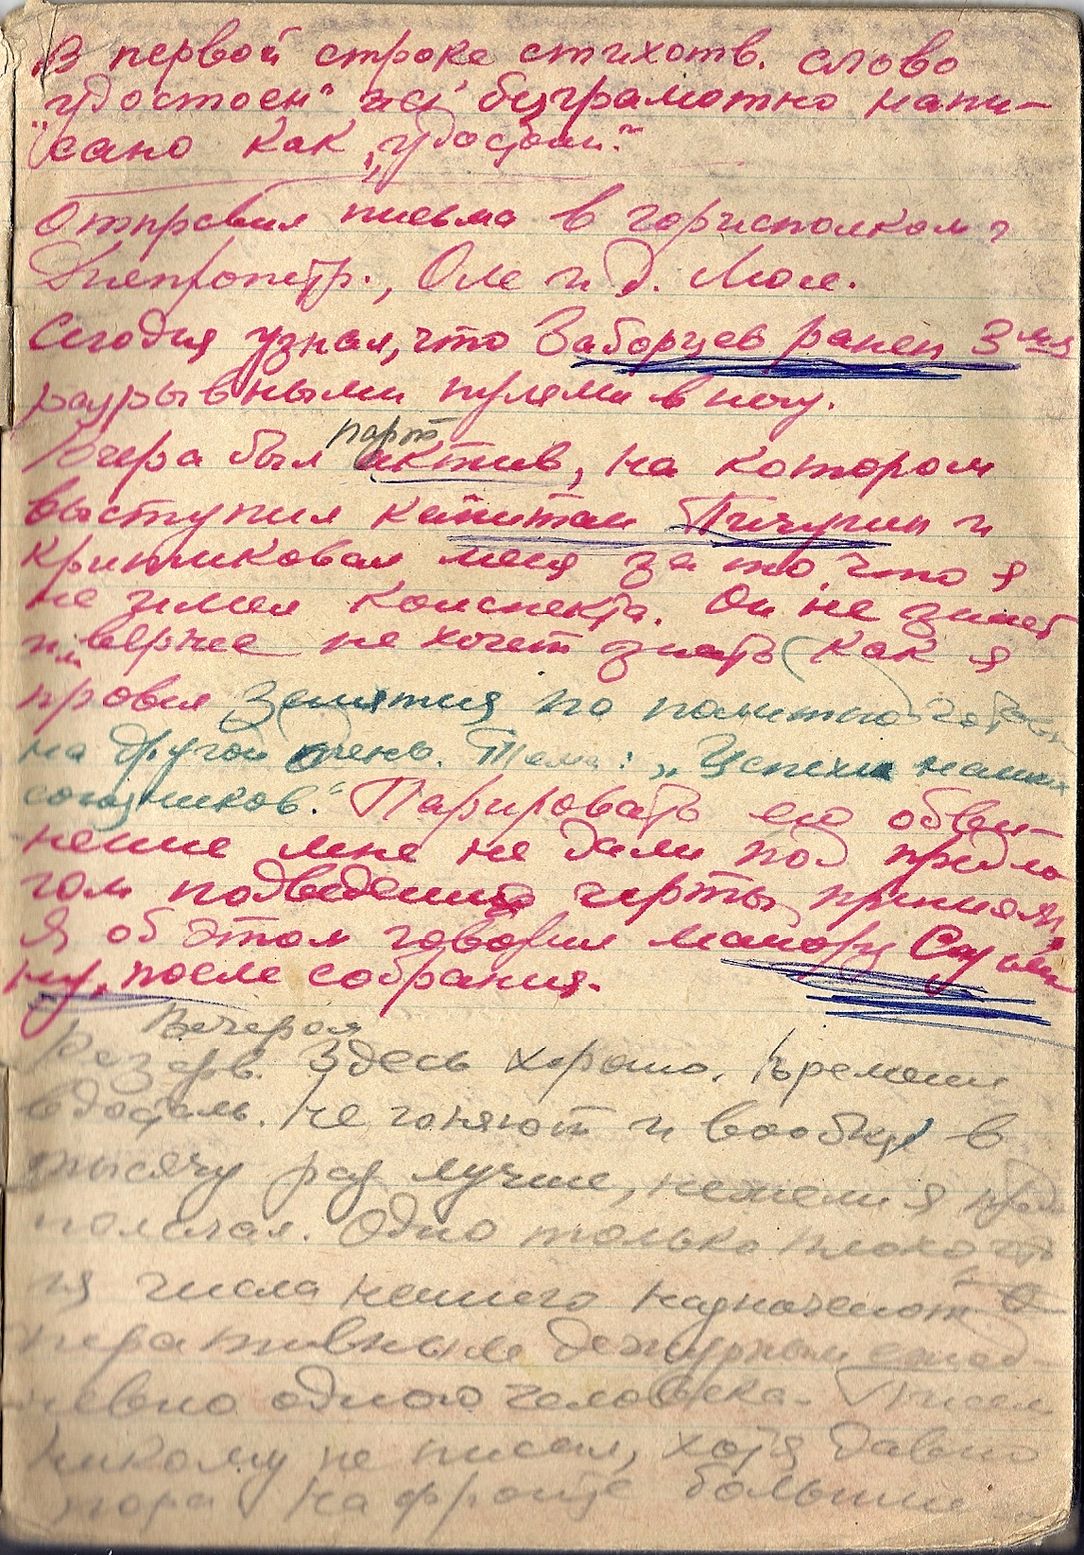 В первой строке стихотв. слово
„удостоен" безграмотно напи-
сано как „удостоин."
Отправил письма в горисполком г
Днепропетр., Оле и д. Люсе.
Сегодня узнал, что Заборцев ранен 3мя
разрывными пулями в ногу.
Вчера был парт
актив, на котором
выступил капитан Пичугин и
критиковал меня за то, что я
не имел конспекта. Он не знает
или вернее не хочет знать как я
провел занятия по политподготовке
на другой день. Тема: „Успехи наших
союзников." Парировать его обви-
нение мне не дали под предло-
гом подведения черты прениям.
Я об этом говорил майору
ну, после собрания.
Вечером
Резерв. Здесь хорошо. Времени
вдосталь. Не гоняют и вообще в
тысячу раз лучше, нежели я пред-
полагал. Одно только плохо что
из числа нашего назначают о-
перативным дежурным ежед-
невно одного человека. Писем
никому не писал, хотя давно
пора. На фронте большие